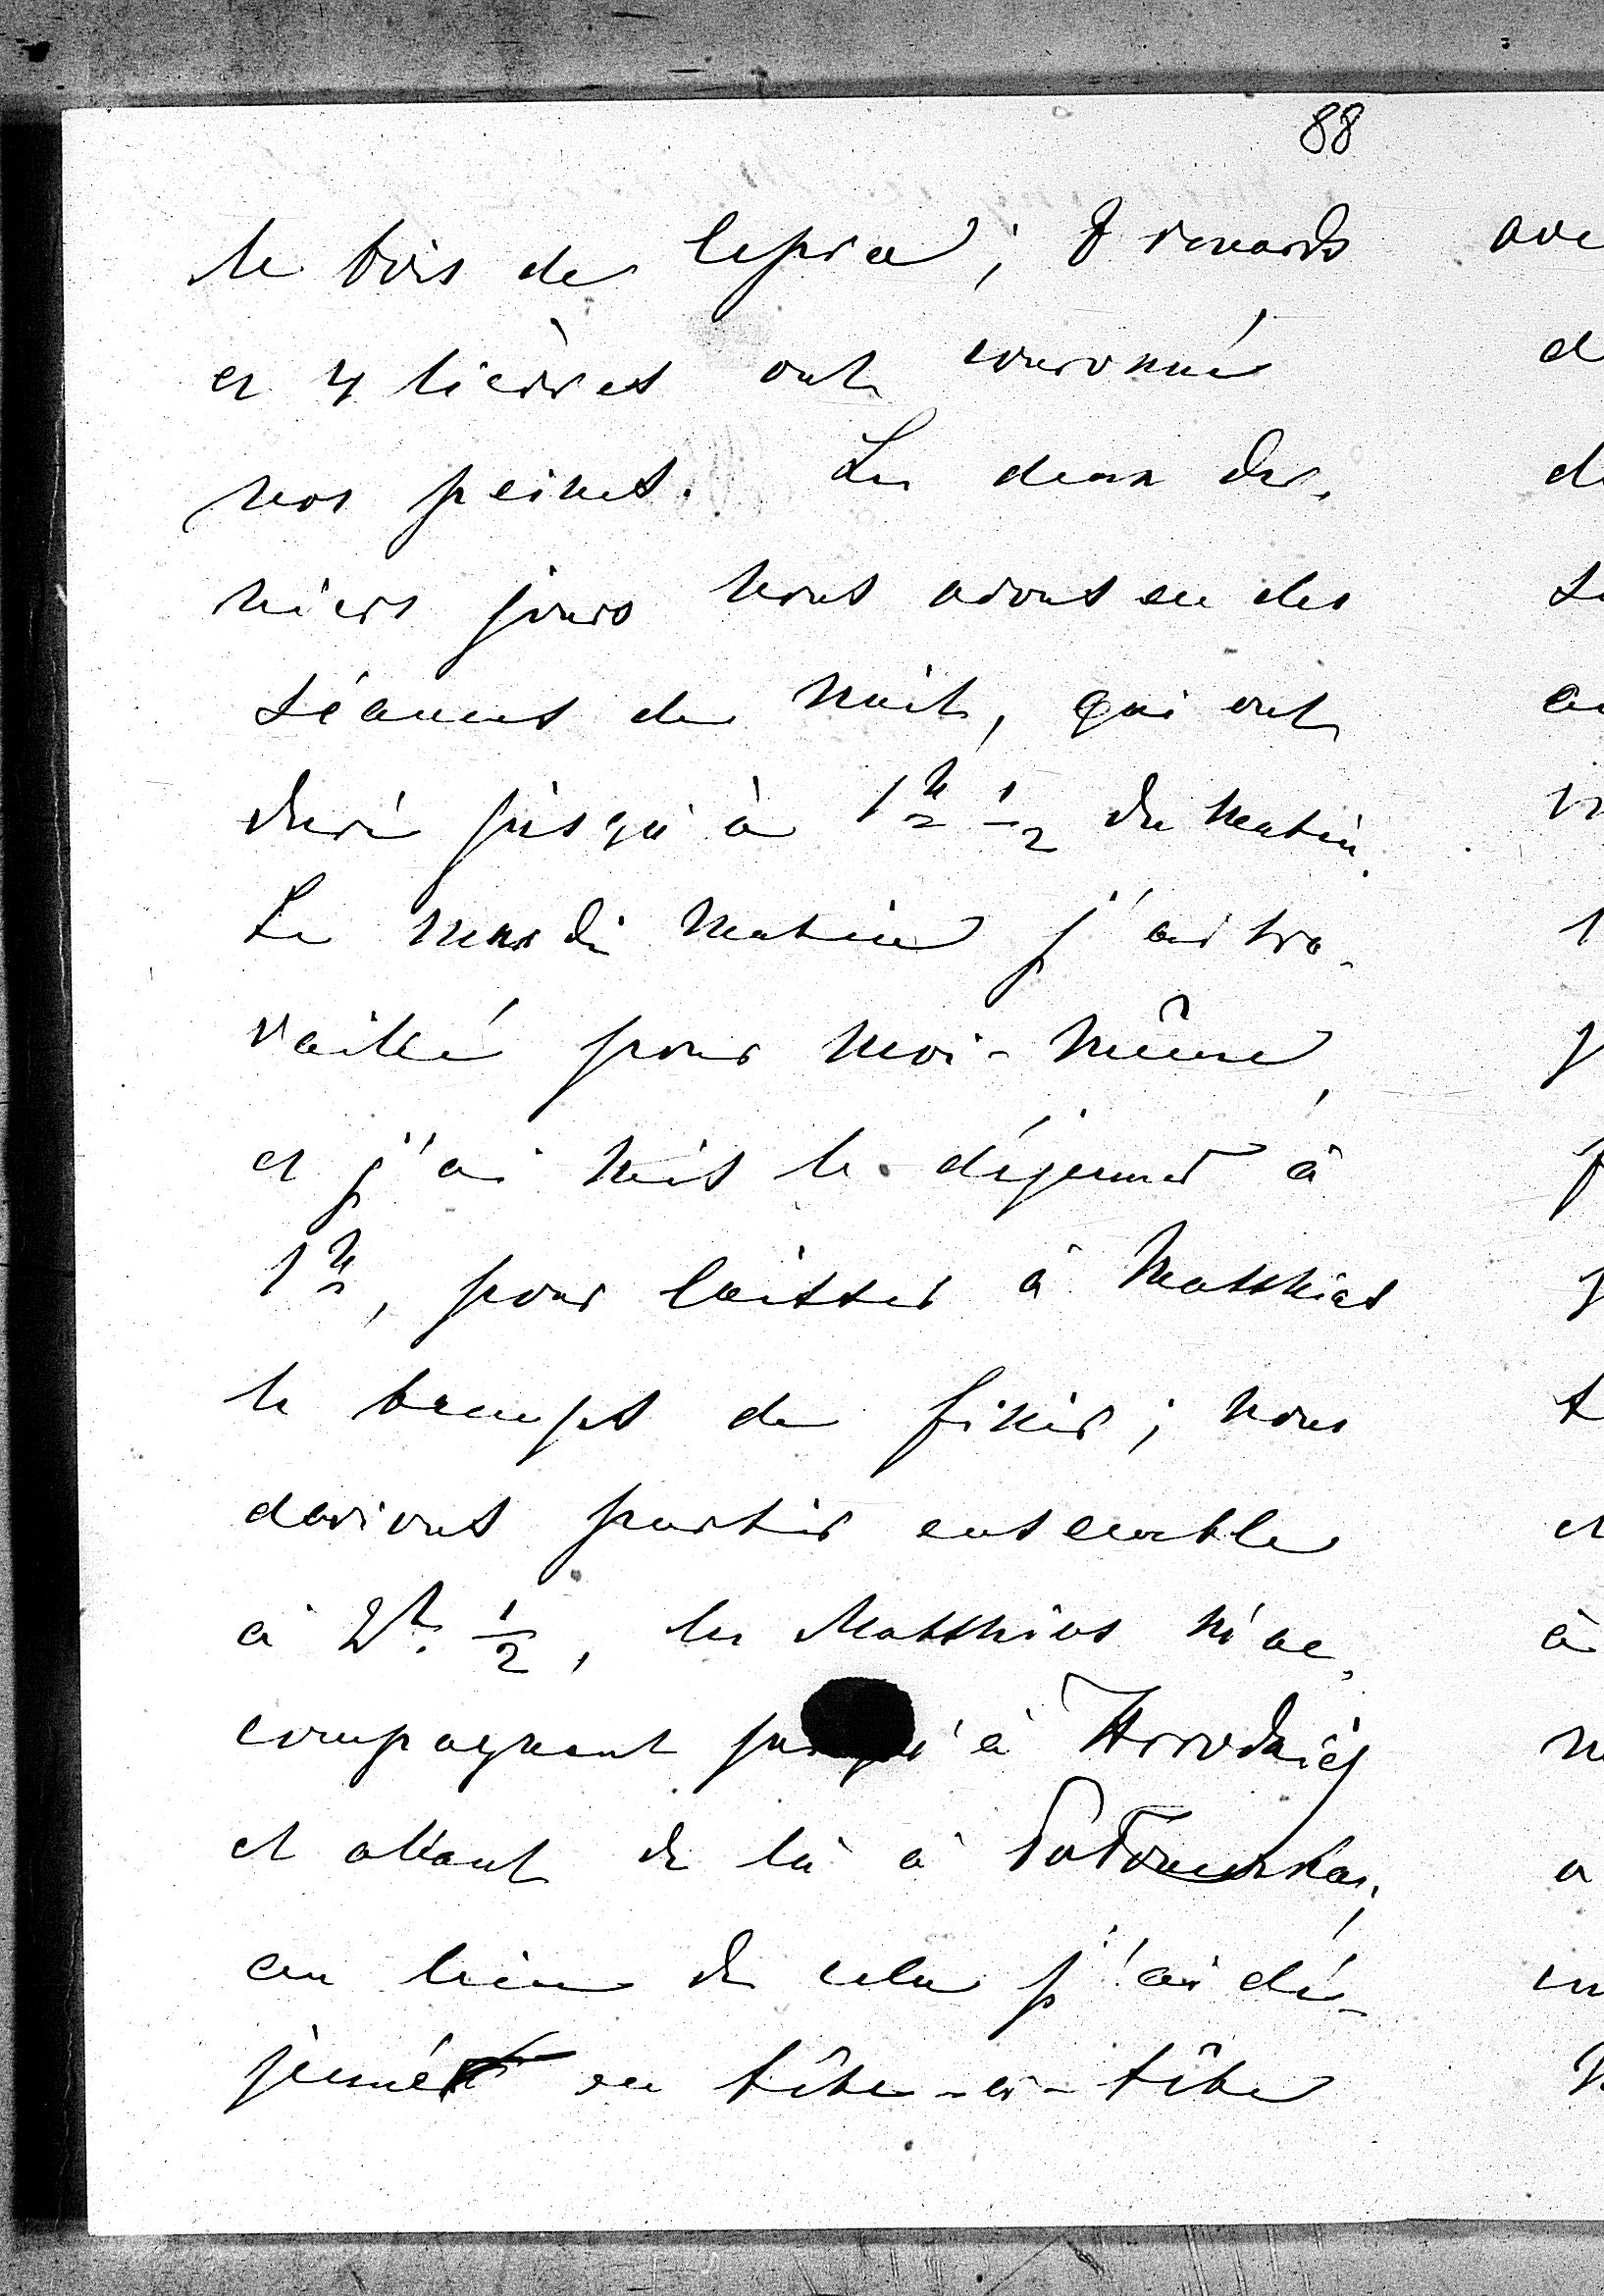 88
le bois de ; 8 renards
et 4 lièvres ont couronné
nos peines. Les deux der-
niers jours nous avons eu des
séances de nuit, qui ont
duré jusqu'à 1h 1/2 du matin.
Le mardi matin j'ai tra-
vaillé pour moi-même,
et j'ai mis le déjeuner à
1h, pour laisser à Matthias
le temps de finir; nous
devions partir ensemble
à 2h. 1/2, les Matthias m'ac-
compagnant jusqu'à
et allant de là à
au lieu de cela j'ai dé-
jeuné en tête-à-tête